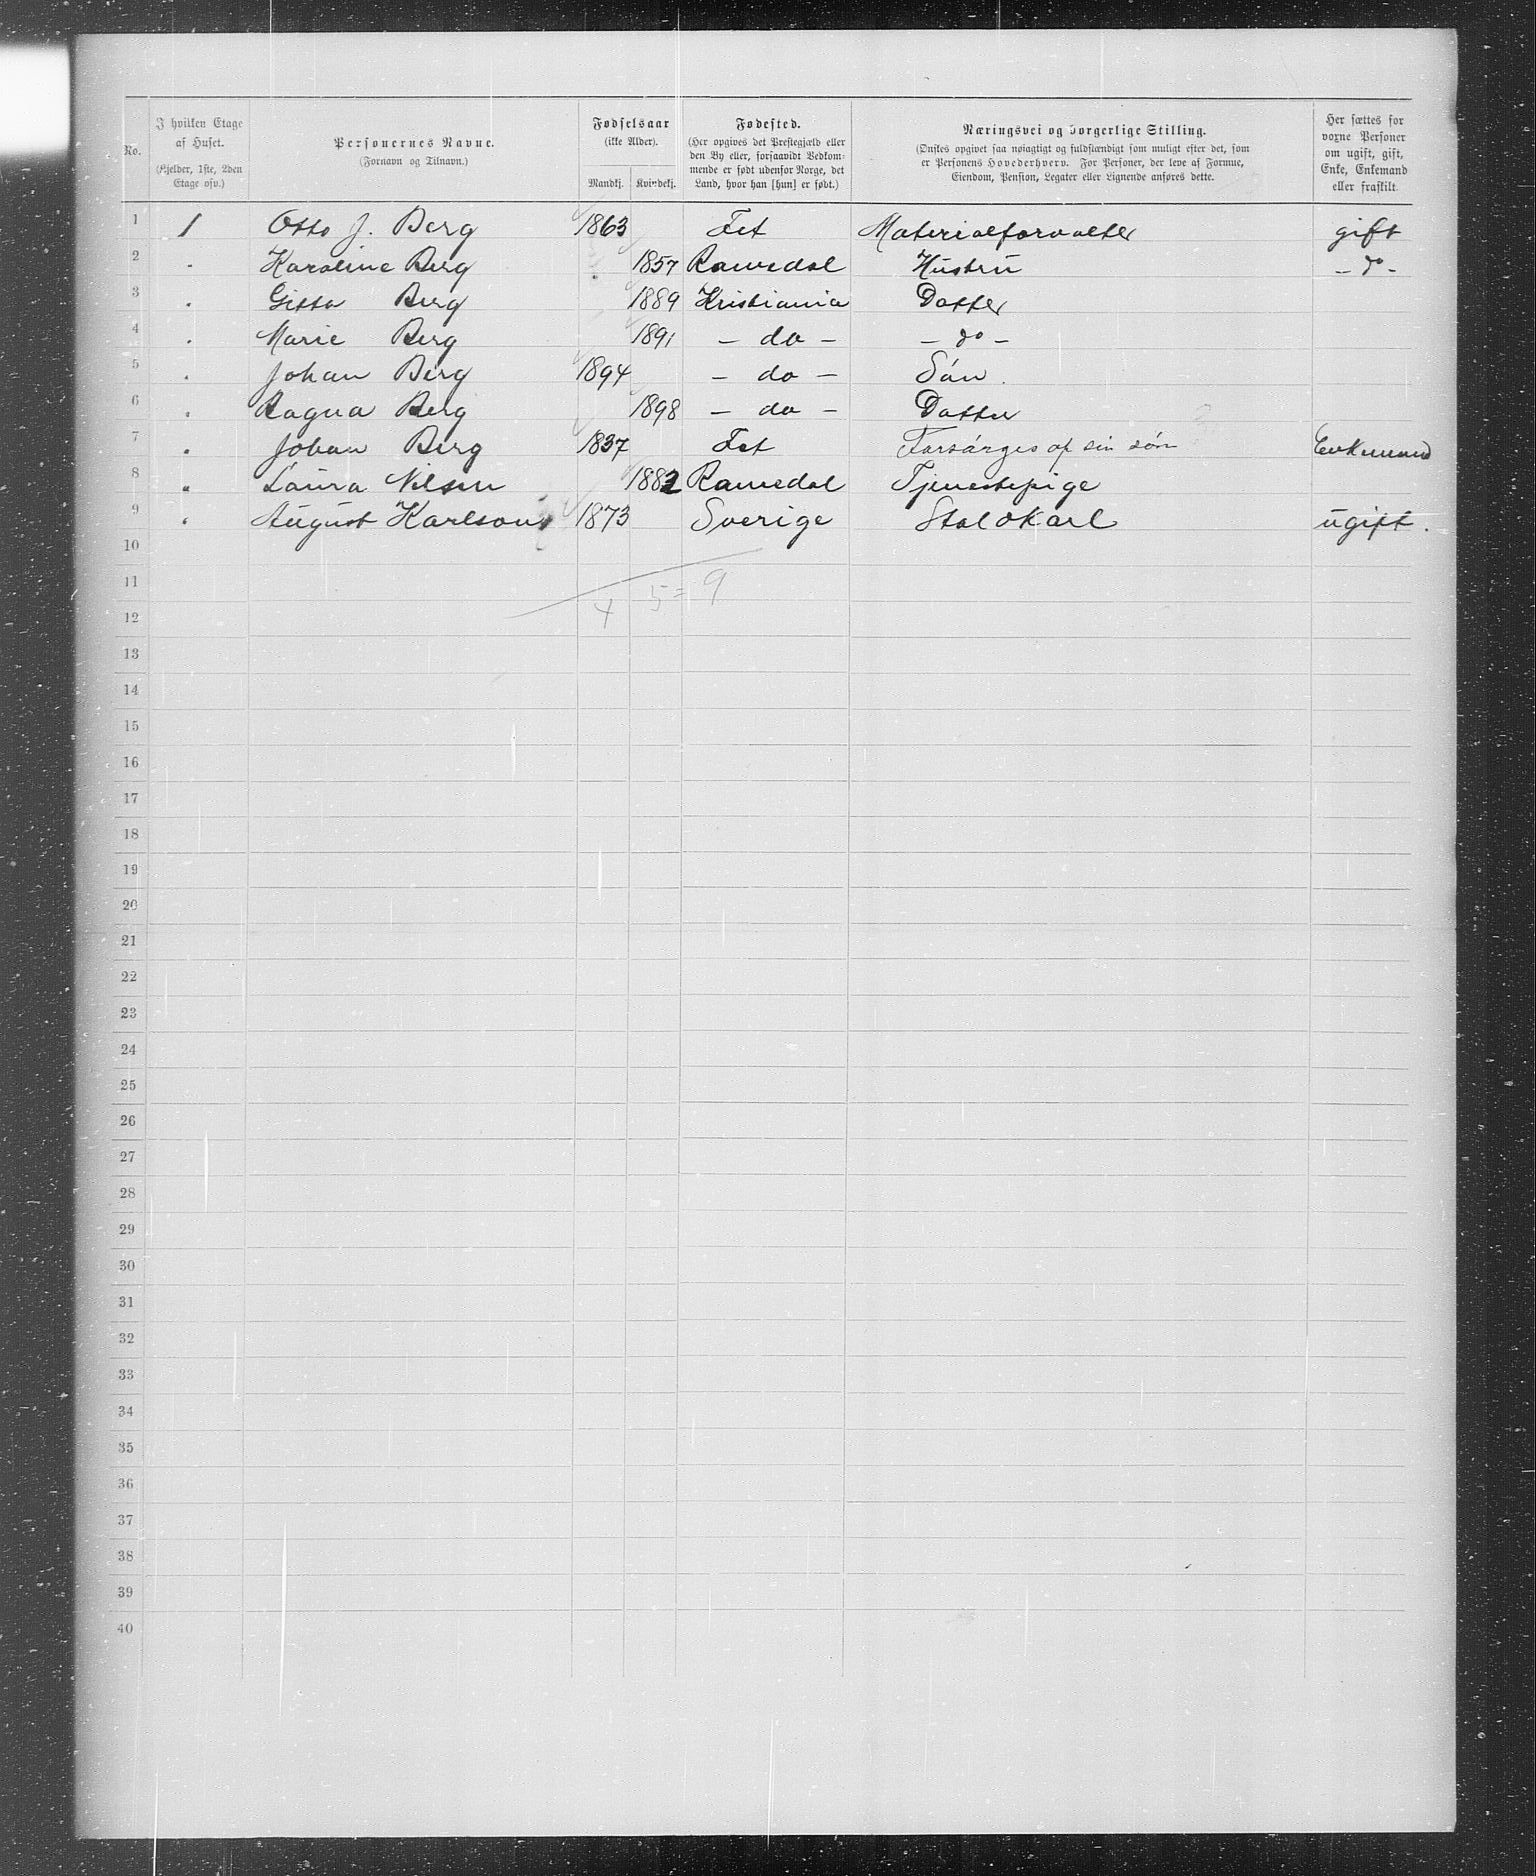 No.
I hvilken Etage af Huset.
(Kjelder, 1ste, 2den Etage osv.)
Personernes Navne.
(Fornavn og Tilnavn.)
Fødselsaar
(ikke Alder).
Mandkj. Kvindekj.
Fødested.
(Her opgives det Prestegjæld eller den By eller, forsaavidt Vedkommende er født udenfor Norge, det Land, hvor han [hun] er født.)
Næringsvei og borgerlige Stilling.
(Ønskes opgivet saa nøiagtigt og fuldstændigt som muligt efter det, som er Personens Hovederhverv. For Personer, der leve af Formue, Eiendom, Pension, Legater eller Lignende anføres dette.
Her sættes for voxne Personer om ugift, gift, Enke, Enkemand eller fraskilt
1 1 Otto J. Berg 1863 Fet Materialforvalter gift
2 " Karoline Berg 1857 Ramsdal Hustru - do -
3 " Gitta Berg 1889 Kristiania Datter
4 " Marie Berg 1891 - do - - do -
5 " Johan Berg 1894 - do - Sön.
6 " Ragna Berg 1898 - do - Datter
7 " Johan Berg 1837 Fet Forsörges af sin sön Enkemand
8 " Laura Nilsen 1882 Ramsdal Tjenestepige
9 " August Karlson 1873 Sverige Staldkarl ugift.
10
11
4 5 = 9
12
13
14
15
16
17
18
19
20
21
22
23
24
25
26
27
28
29
30
31
32
33
34
35
36
37
38
39
40